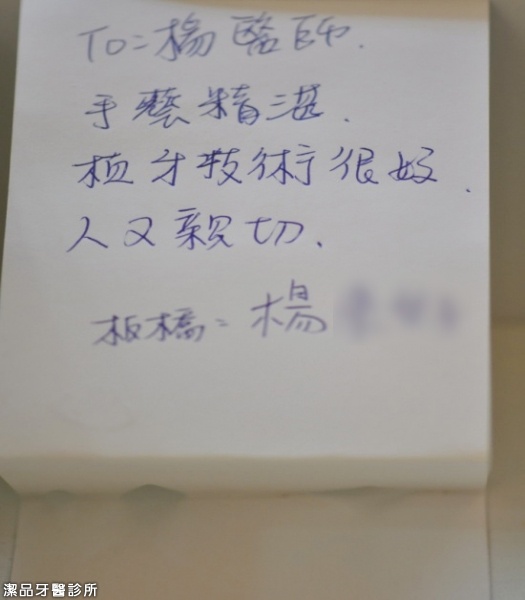 To=楊醫師.
手藝精湛.
植牙技術很好.
人又親切.
板橋=楊
潔品牙醫診所